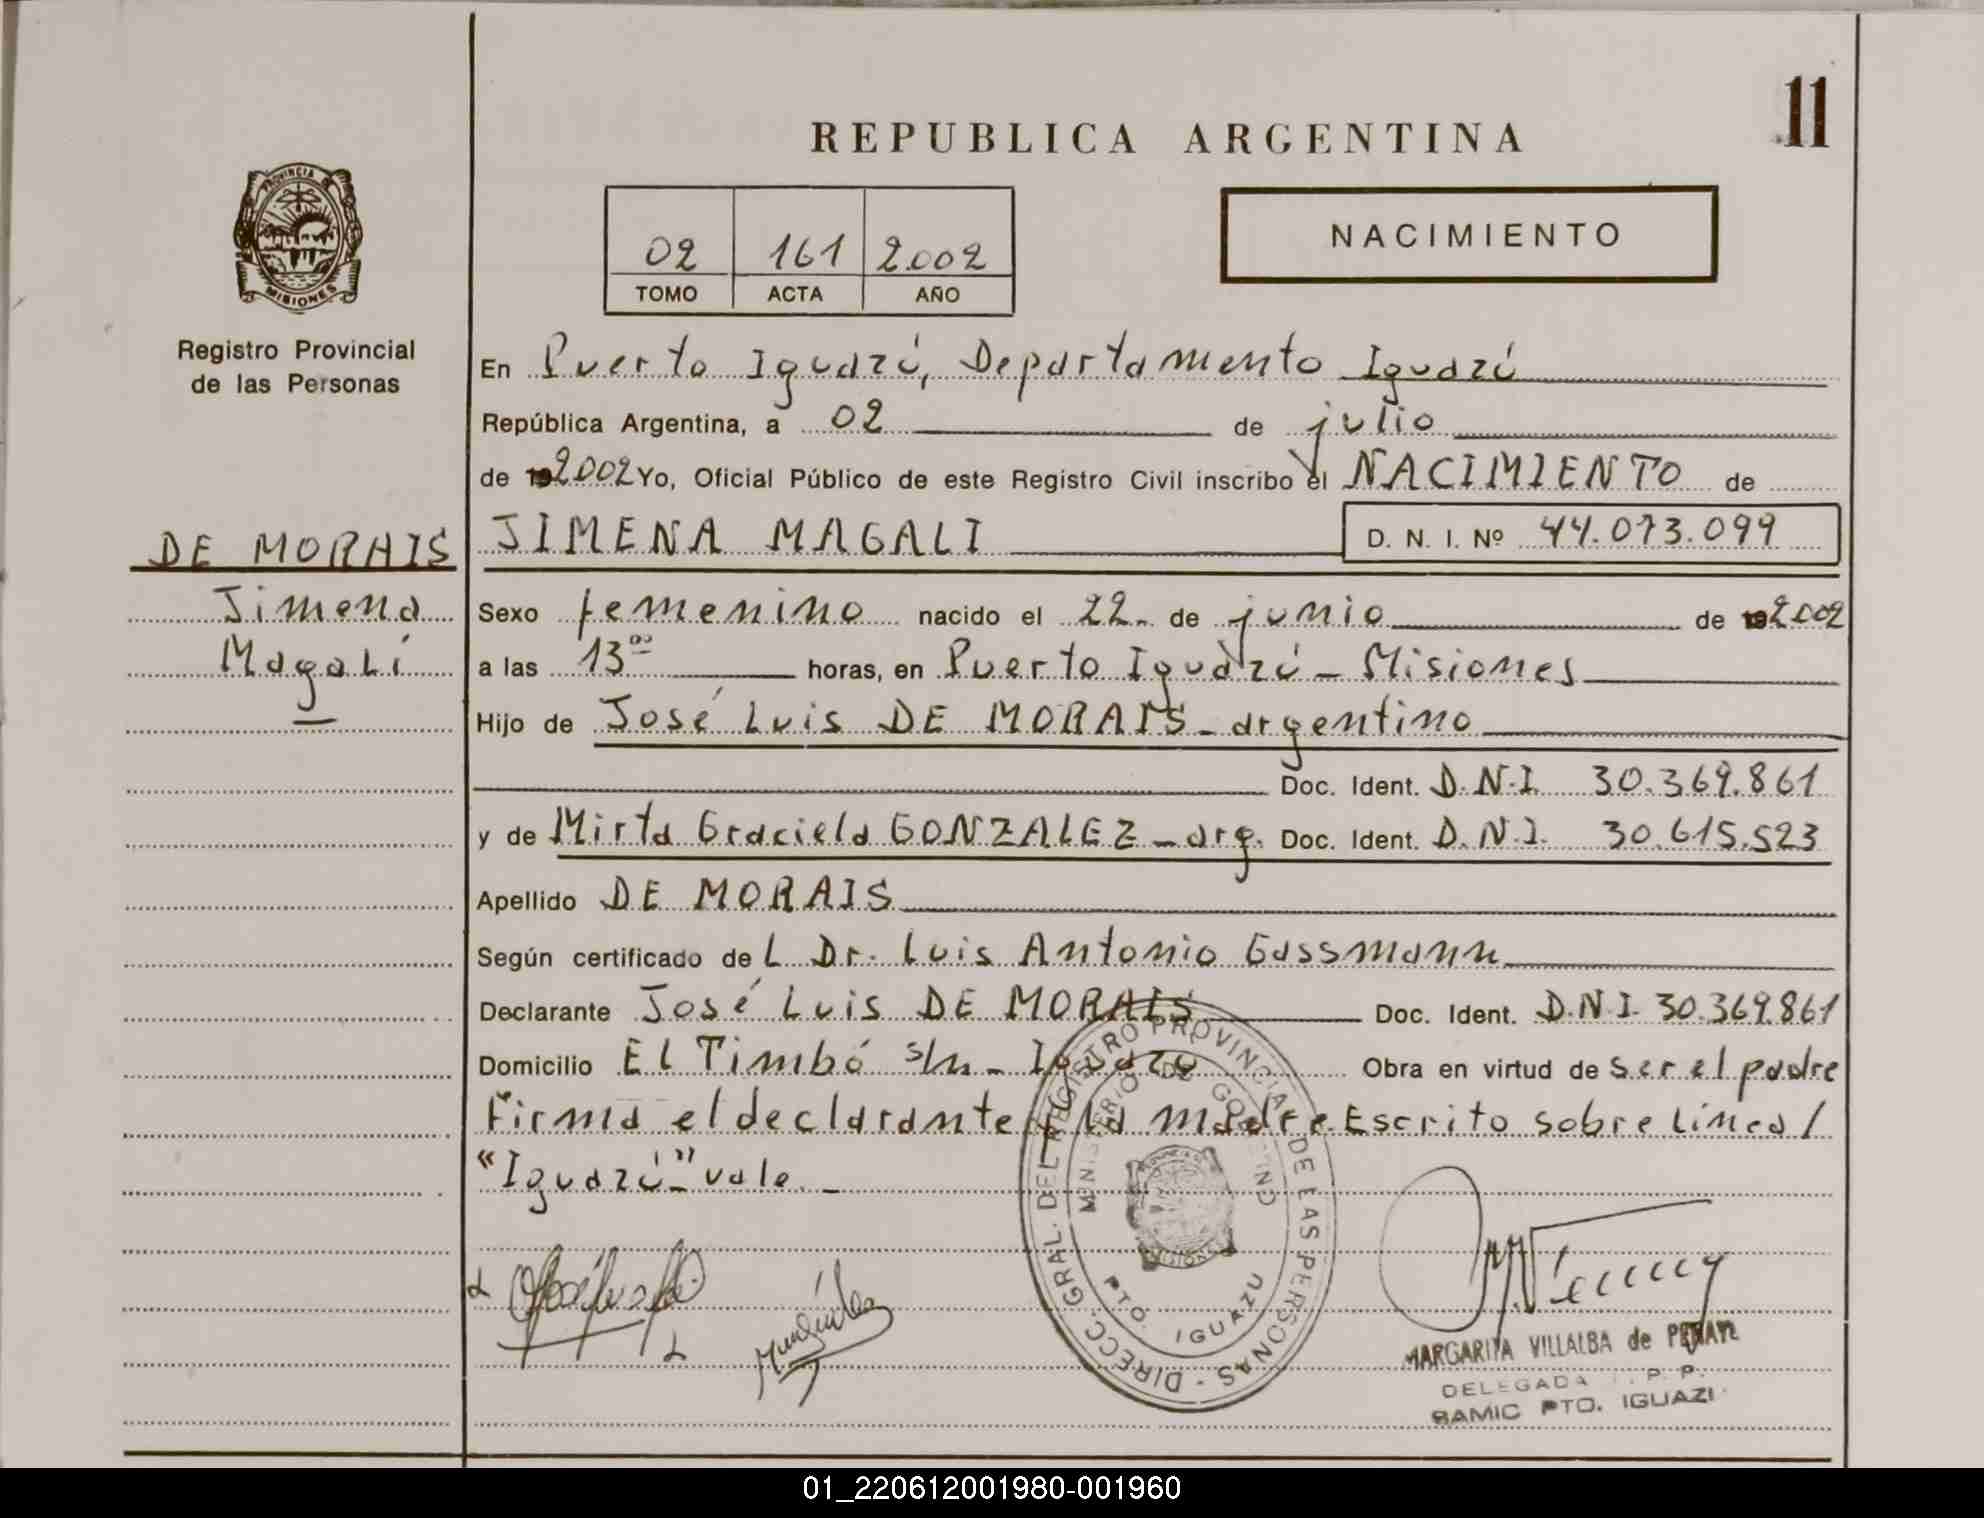 11
REPUBLICA ARGENTINA
PROVINCIA DE
MISIONES
Registro Provincial
de las Personas
02 161 2002
TOMO ACTA AÑO
NACIMIENTO
En Puerto Iguazú, Departamento Iguazú
República Argentina, a 02 de julio
de 192002 Yo, Oficial Público de este Registro Civil inscribo el NACIMIENTO de
DE MORAIS
Jimena
Magalí
JIMENA MAGALI D. N. I. Nº 44.073.099
Sexo femenino nacido el 22 de junio de 192002
a las 13°° horas, en Puerto Iguazú - Misiones
Hijo de José Luis DE MORAIS - argentino
Doc. Ident. D.N.I. 30.369.861
y de Mirta Graciela GONZALEZ - arg. Doc. Ident. D.N.I. 30.615.523
Apellido DE MORAIS
Según certificado del Dr. Luis Antonio Gassmann
Declarante José Luis DE MORAIS Doc. Ident. D.N.I. 30.369.861
Domicilio El Timbó s/n - Iguazú Obra en virtud de ser el padre
Firma el declarante y la madre. Escrito sobre línea/
"Iguazú" vale. -
DIRECC. GRAL. DEL REGISTRO PROVINCIAL DE LAS PERSONAS -
MINISTERIO DE GOBIERNO
PTO. IGUAZU
MARGARITA VILLALBA de
DELEGADA P. P.
SAMIC PTO. IGUAZU
01_220612001980-001960